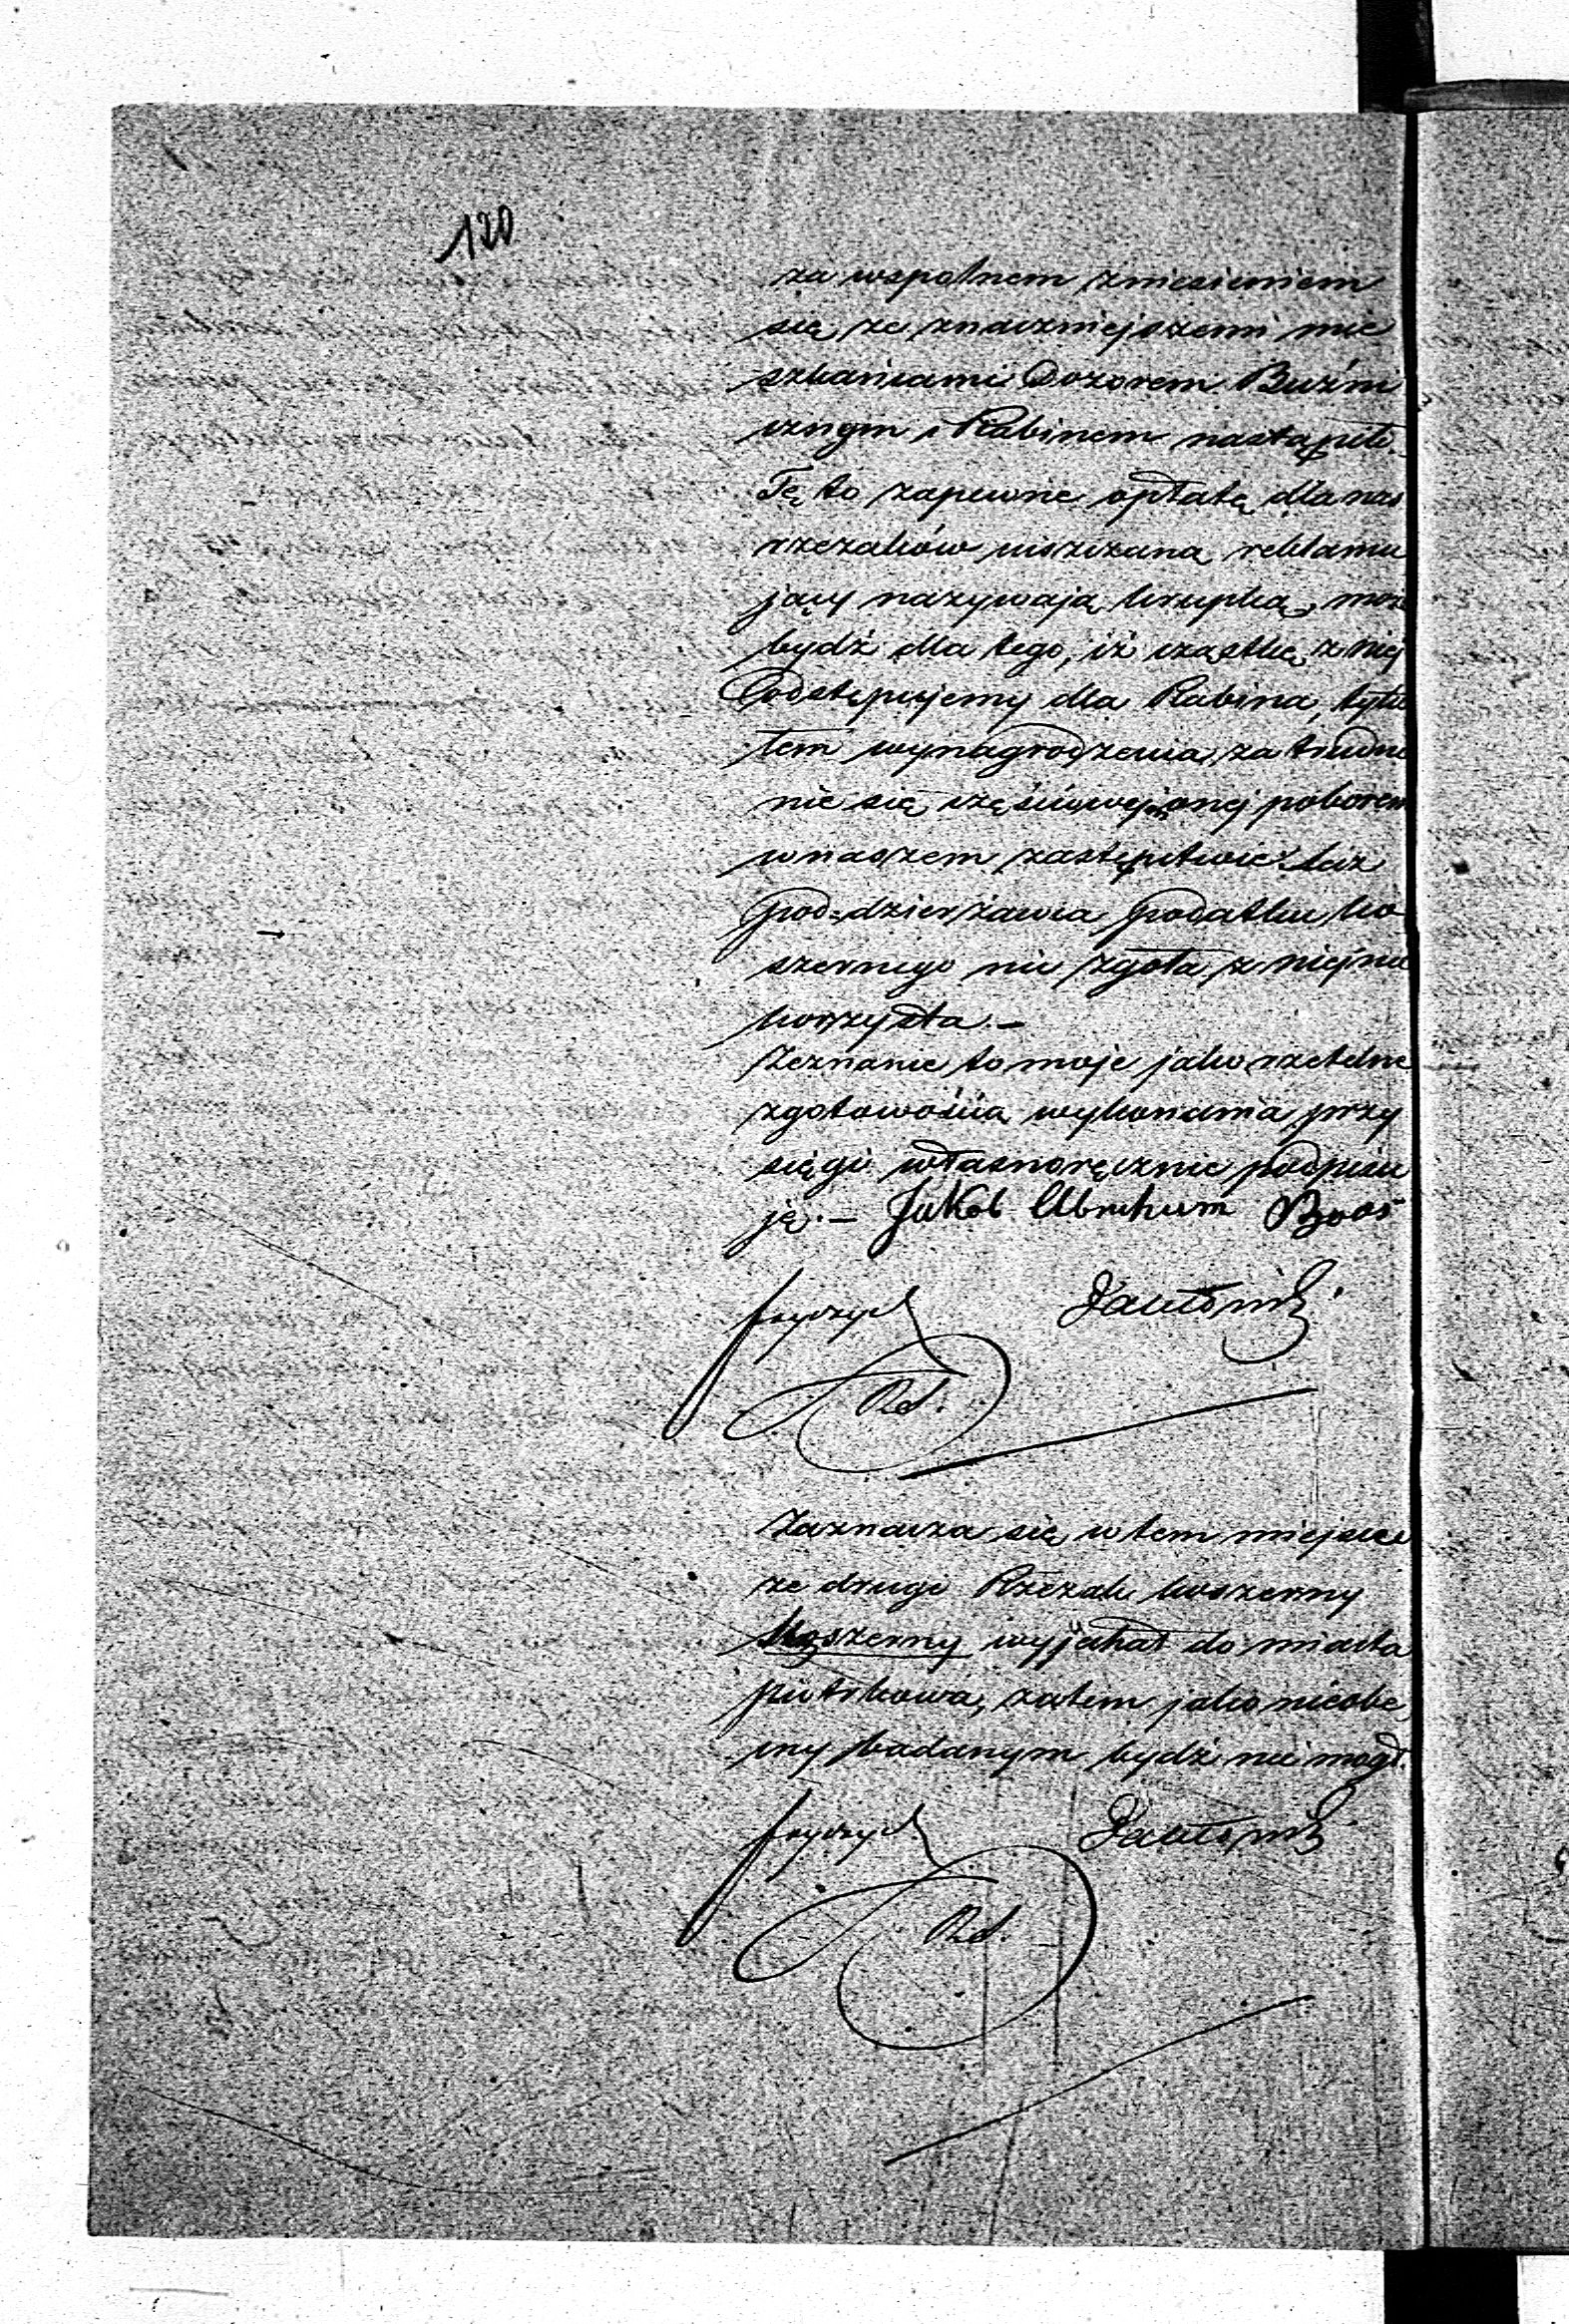 120
za wspolnem zniesieniem
się ze znaczniejszemi mie
szkańcami Dozorem Buźni
cznym i Rabinem nastąpiło.
Tę to zapewne opłatę dla nas
rzezaków uiszczaną reklamu
jący nazywają krupką, moż
bydź dla tego, iż cząstkę z niej
odstępujemy dla Rabina, tytu
łem wynagrodzenia za trudnie
nie się częściowej onej poborem
w naszem zastępstwie lecz
pod-dzierżawca podatku ko
szernego nic zgoła z niej nie
korzysta.—
Zeznanie to moje jako rzetelne
z gotowością wykonania przy
sięgi własnoręcznie podpisu
ję.— Jakob Abraham Boas
Rd.
Zaznacza się w tem miejscu
że drugi Rzezak koszerny
Koszerny wyjechał do miasta
piotrkowa, zatem jako nieobe
cny badanym bydź nie mógł.
Rd.